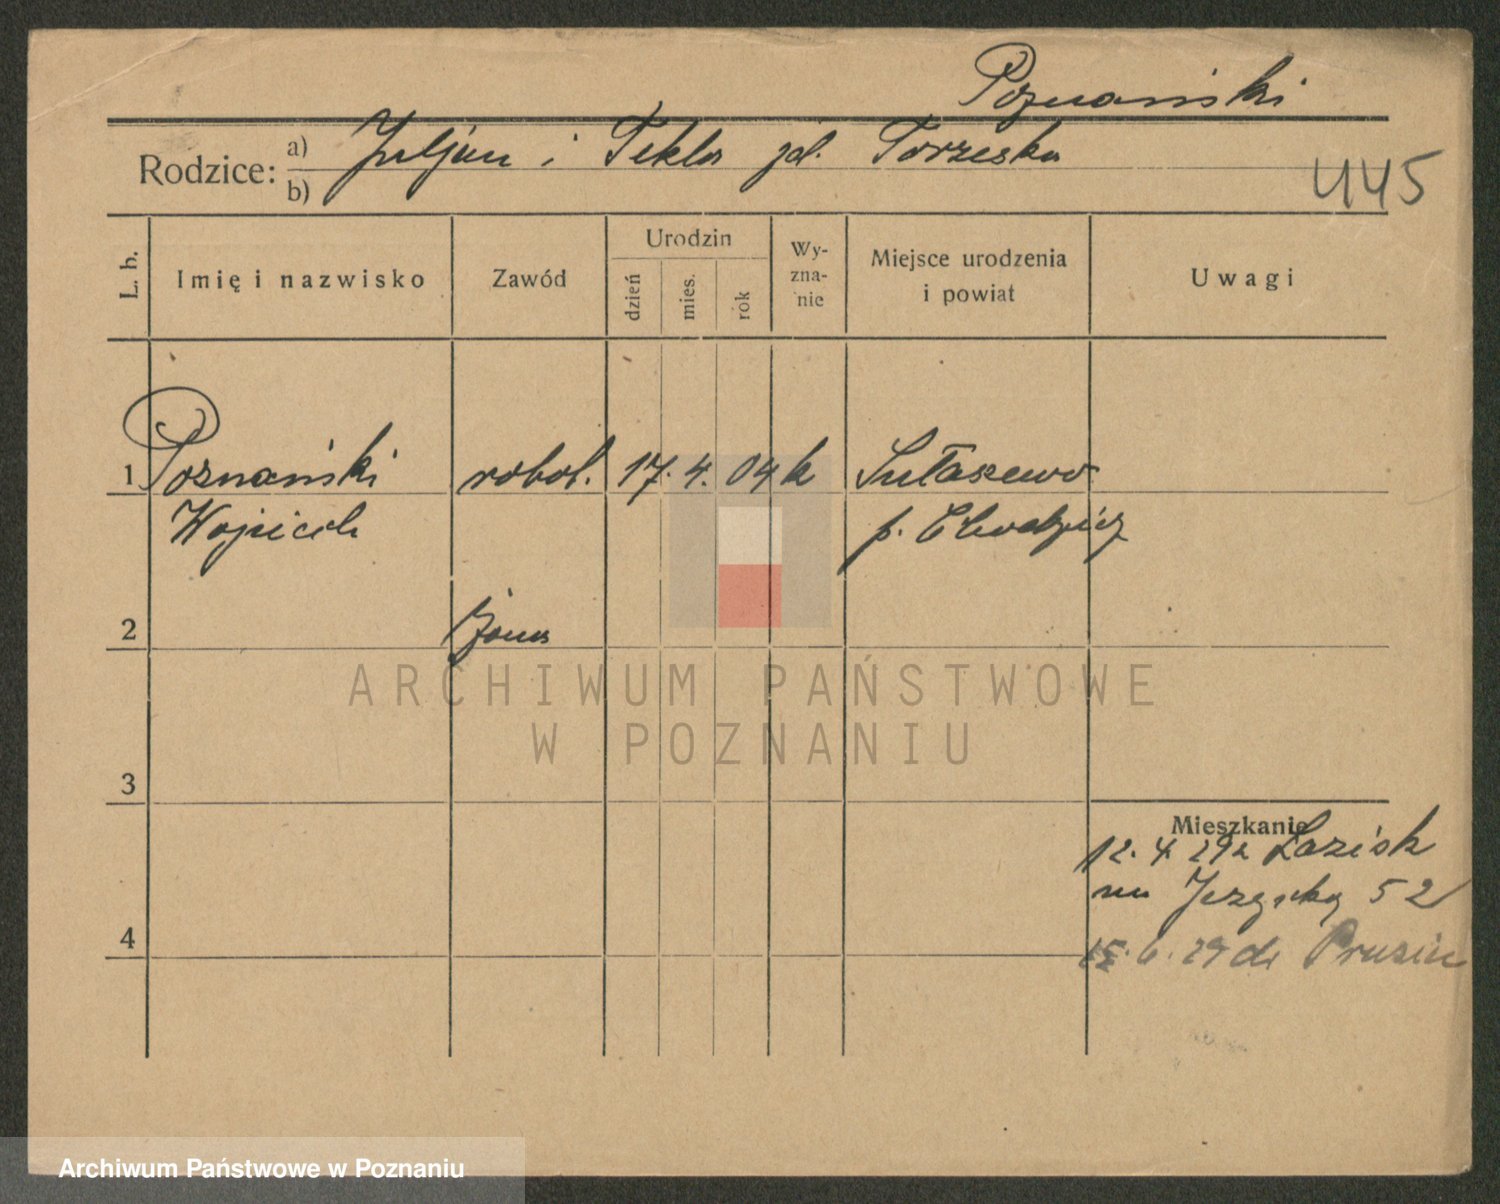 Poznański
Rodzice: a) Juljan i Tekla zd. Torzeska
b)
445
L. b. Imię i nazwisko Zawód Urodzin dzień mies. rok Wyzna-nie Miejsce urodzenia i powiat Uwagi
1 Poznański robot. 17. 4. 04 k Sułaszewo
Wojciech p. Chodzież
2 żona
3
Mieszkanie
12. 4. 29 z Łazisk
na Jezycką 52
4
15. 6. 29 do Prusin
ARCHIWUM PAŃSTWOWE
W POZNANIU
Archiwum Państwowe w Poznaniu